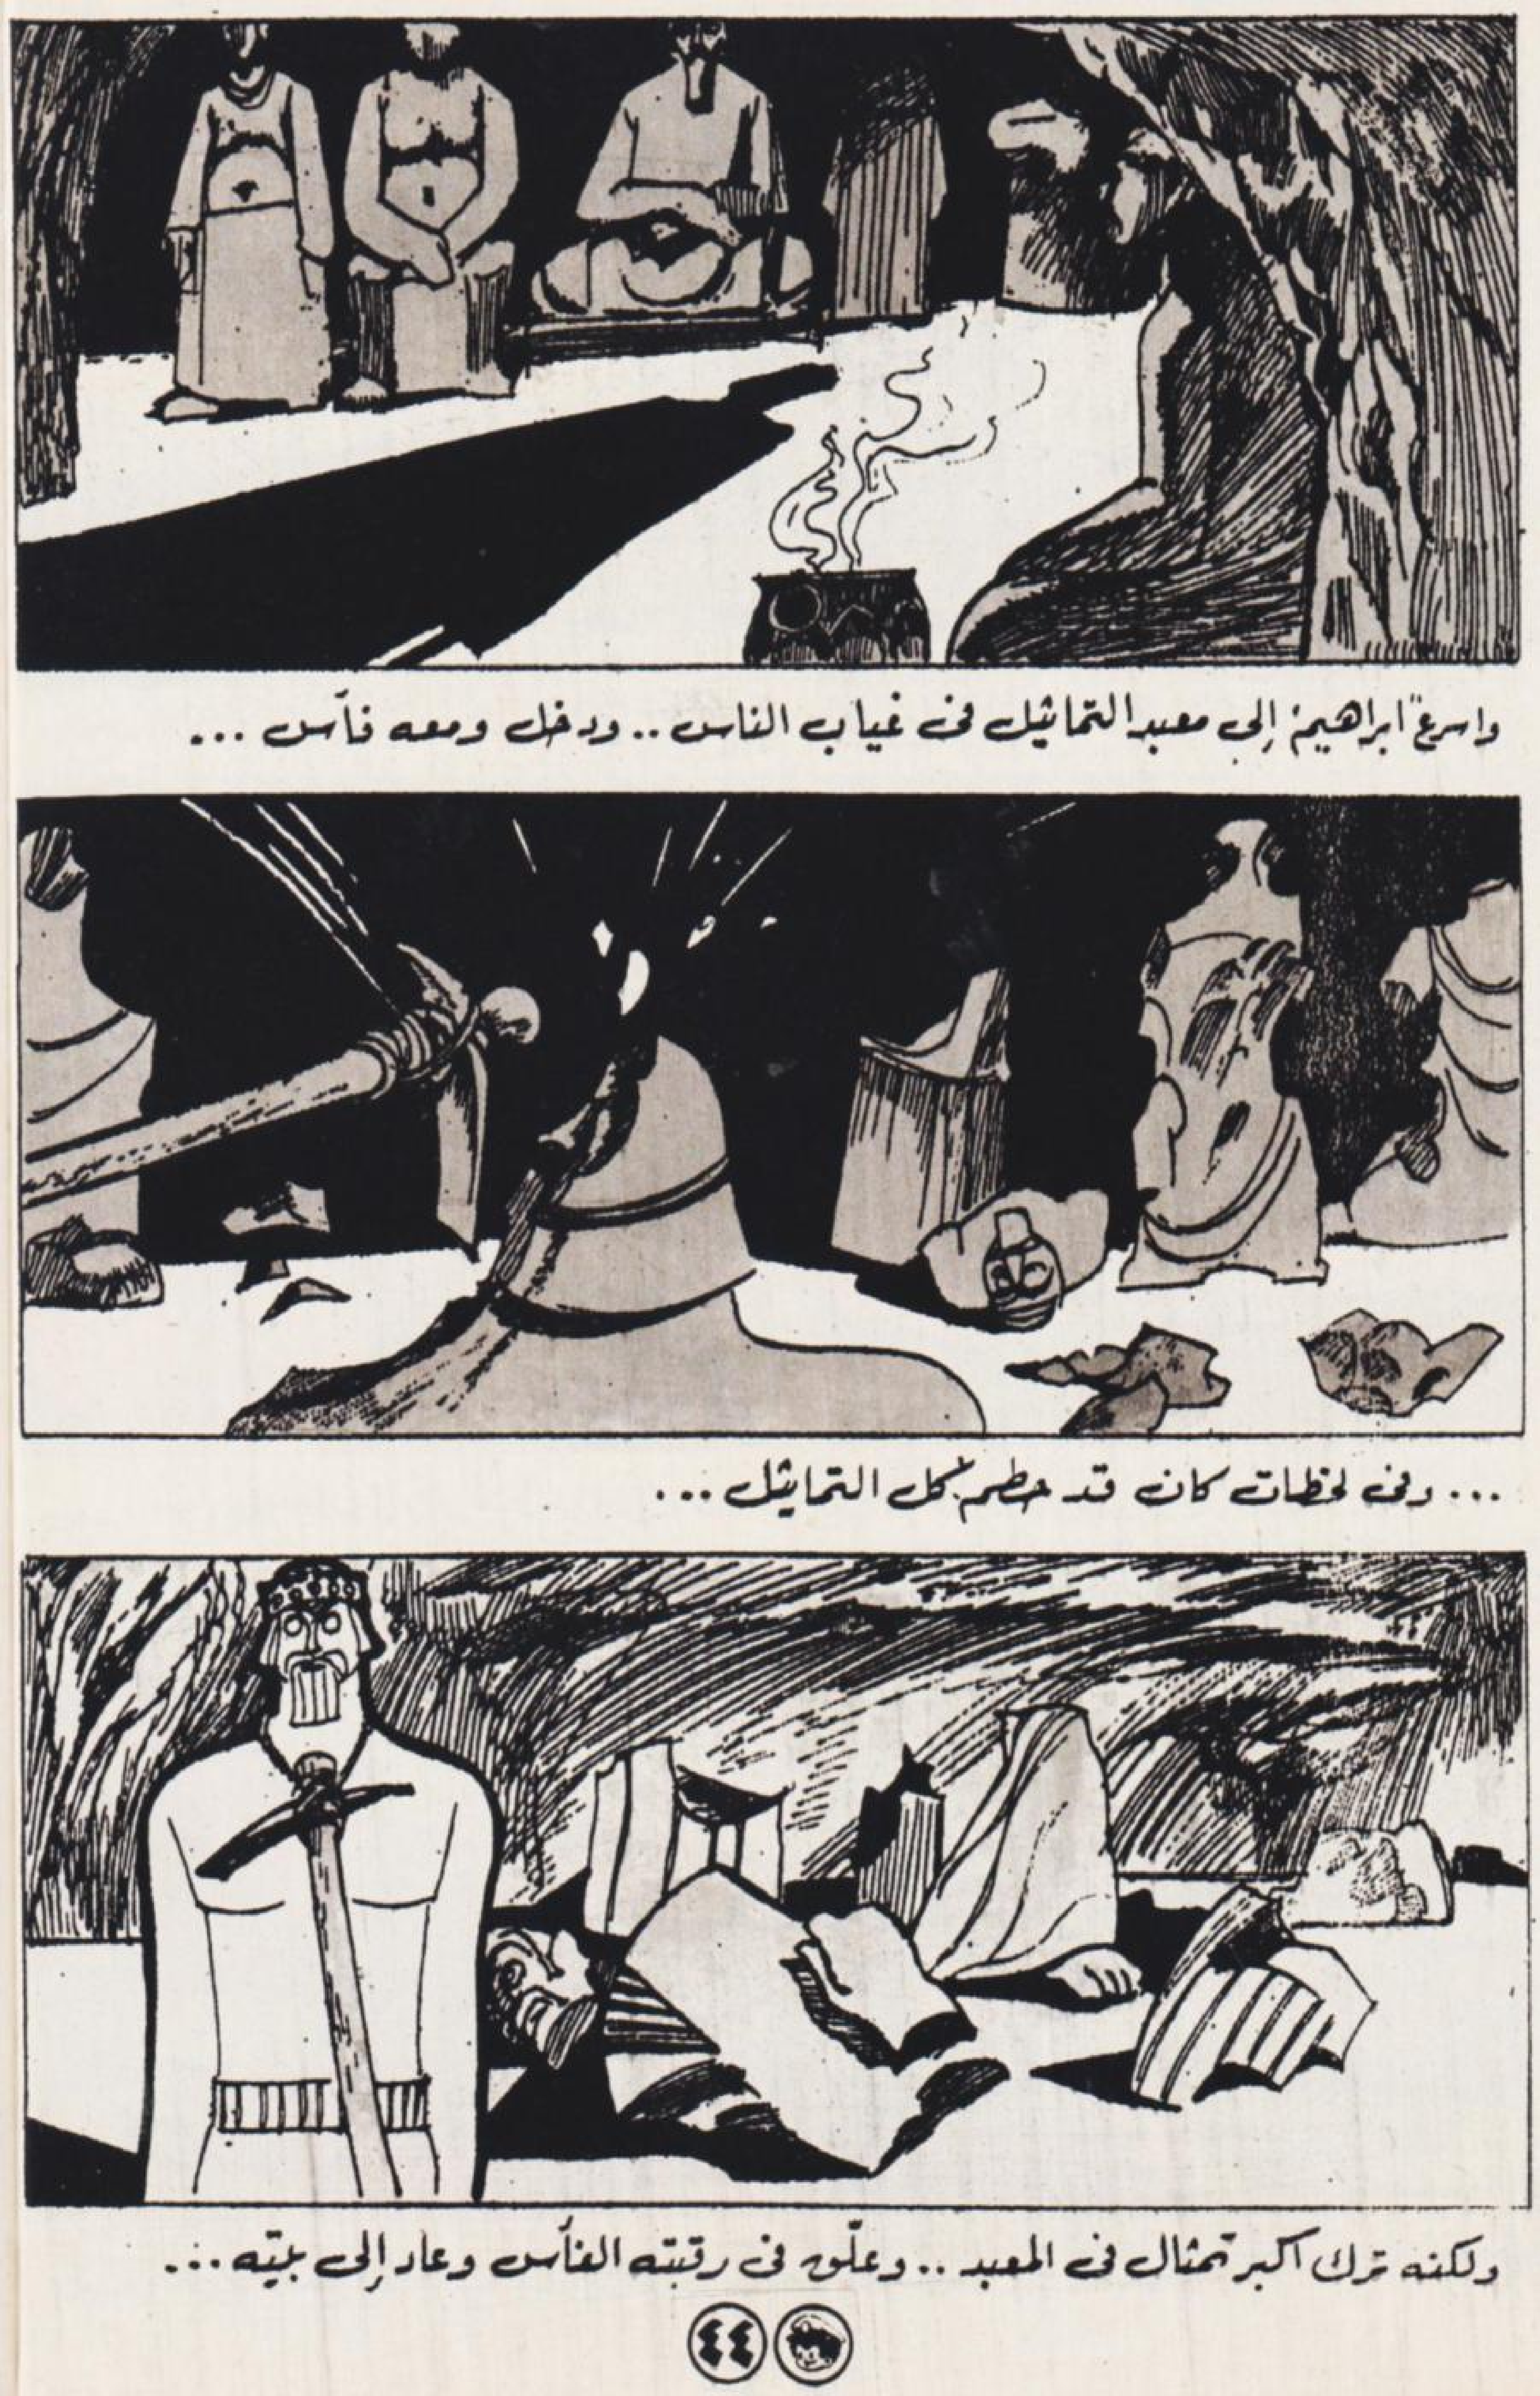 واسرع "ابراهيم" إلى معبد التماثيل فى غياب الناس .. ودخل ومعه فأس ...
... وفى لحظات كان قد حطم كل التماثيل ...
ولكنه ترك اكبر تمثال فى المعبد .. وعلّق فى رقبته الفأس وعاد إلى بيته ...
٤٤